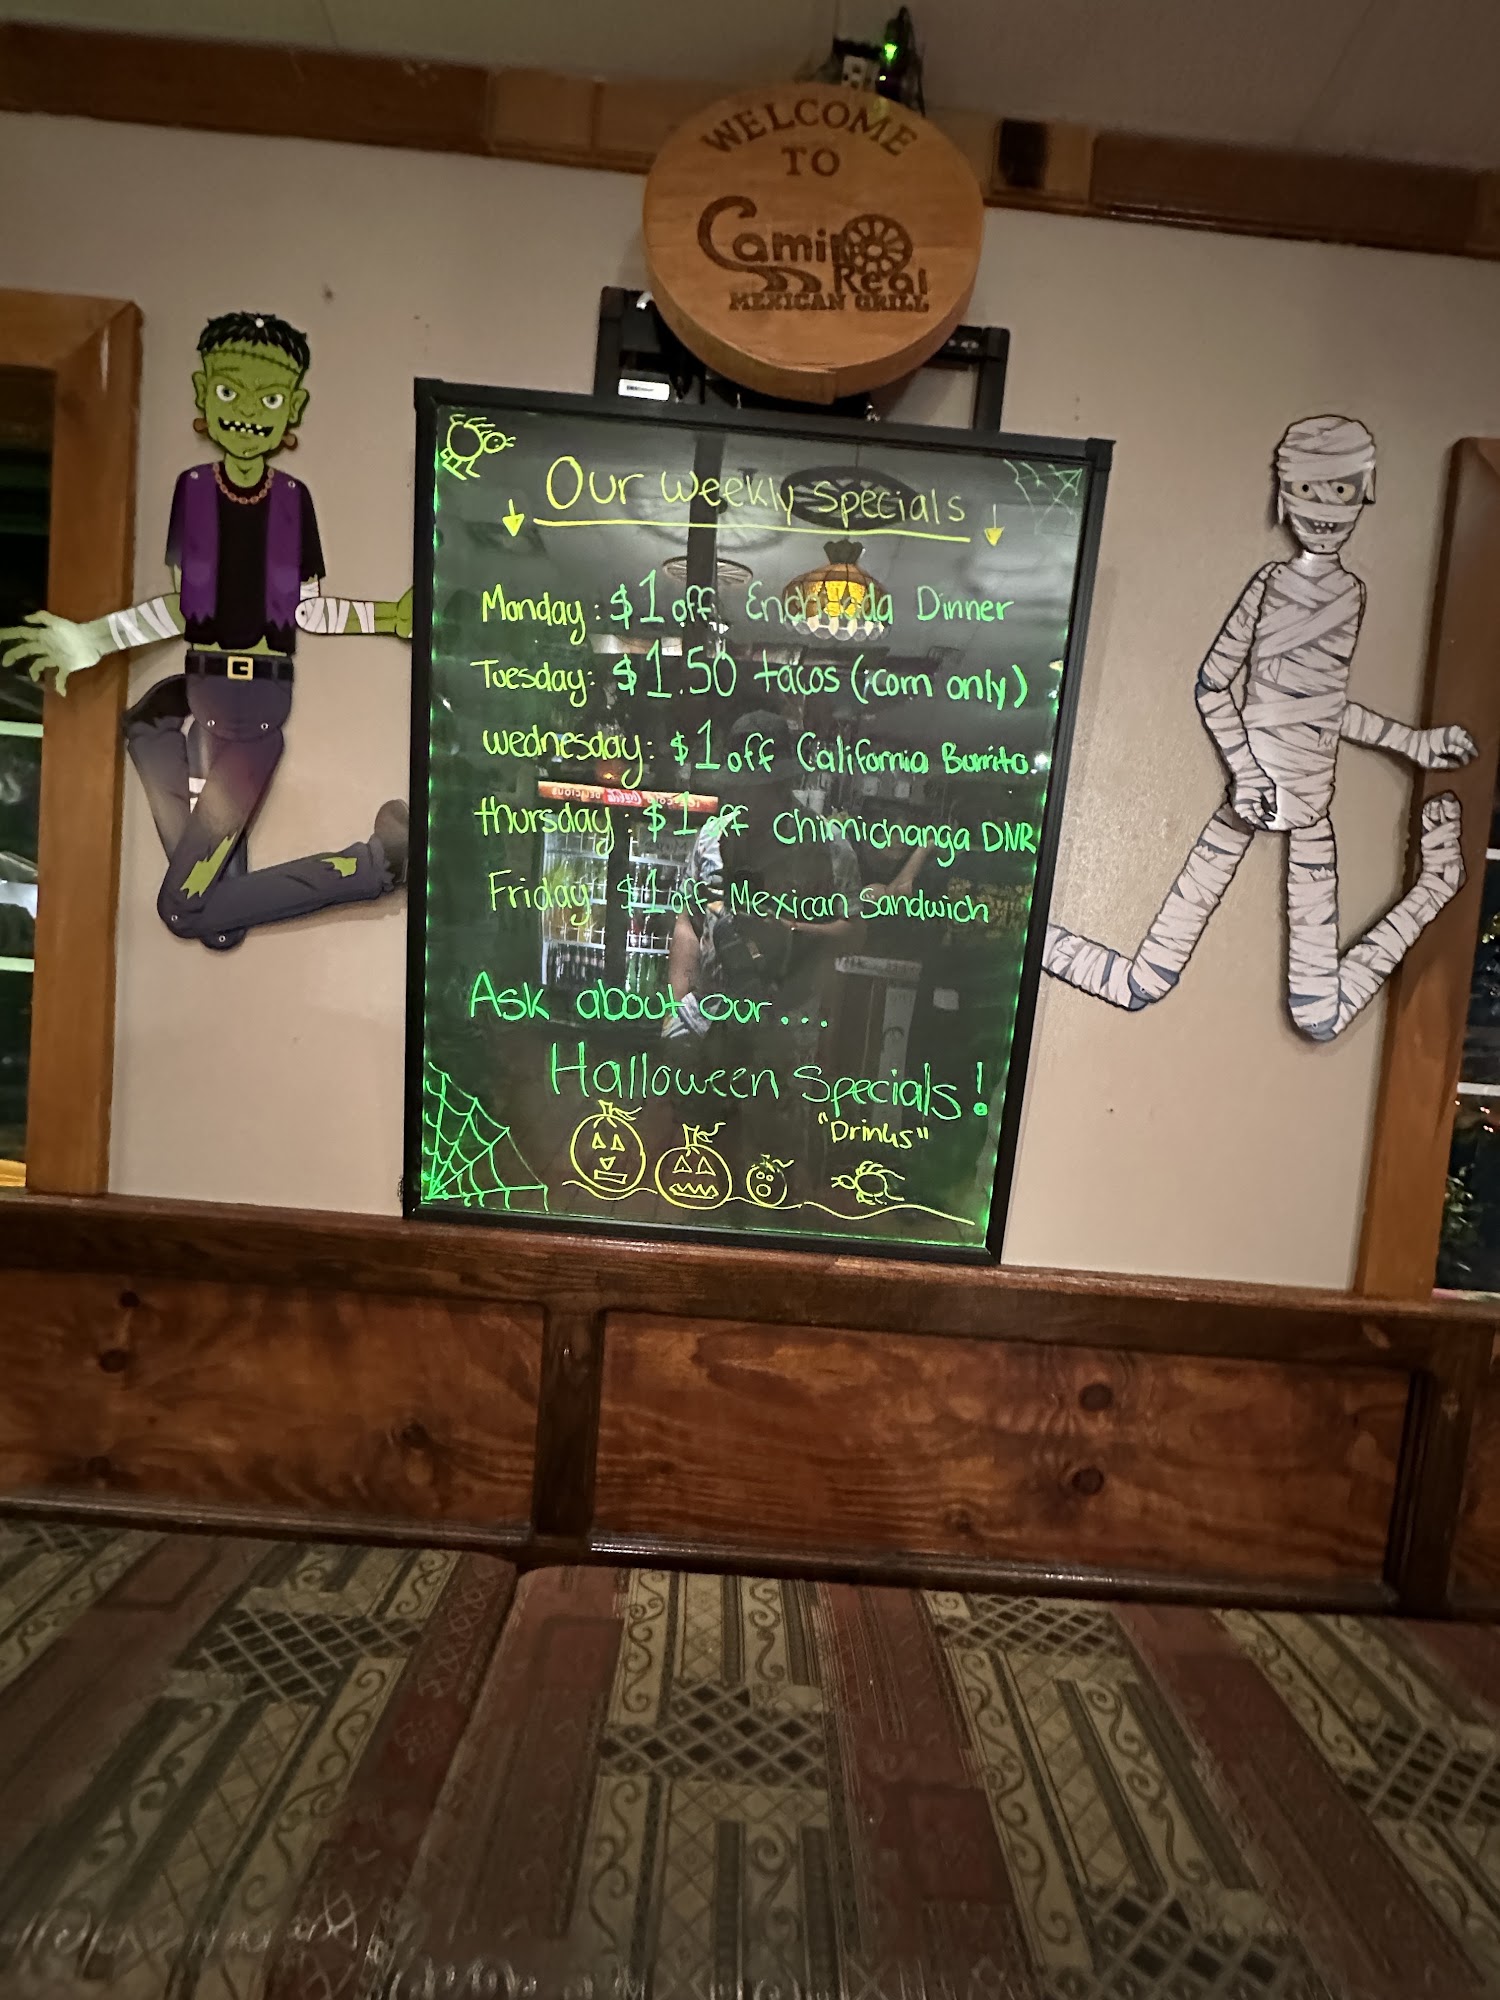 WELCOME
TO
Camino
Real
MEXICAN GRILL
Our Weekly Specials
Monday: $1 off Enchilada Dinner
Tuesday: $1.50 tacos (corn only)
Wednesday: $1 off California Burrito
thursday: $1 off Chimichanga DNR
Friday: $1 off Mexican Sandwich
Ask about our...
Halloween Specials!
"Drinks"